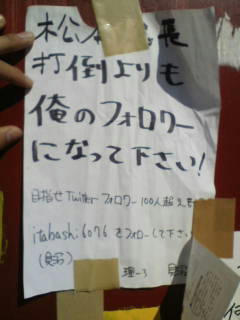 松本 長
打倒よりも
俺のフォロワー
になって下さい!
目指せTwitterフォロワー100人超え
itabashi6076をフォローして下さい
理一3